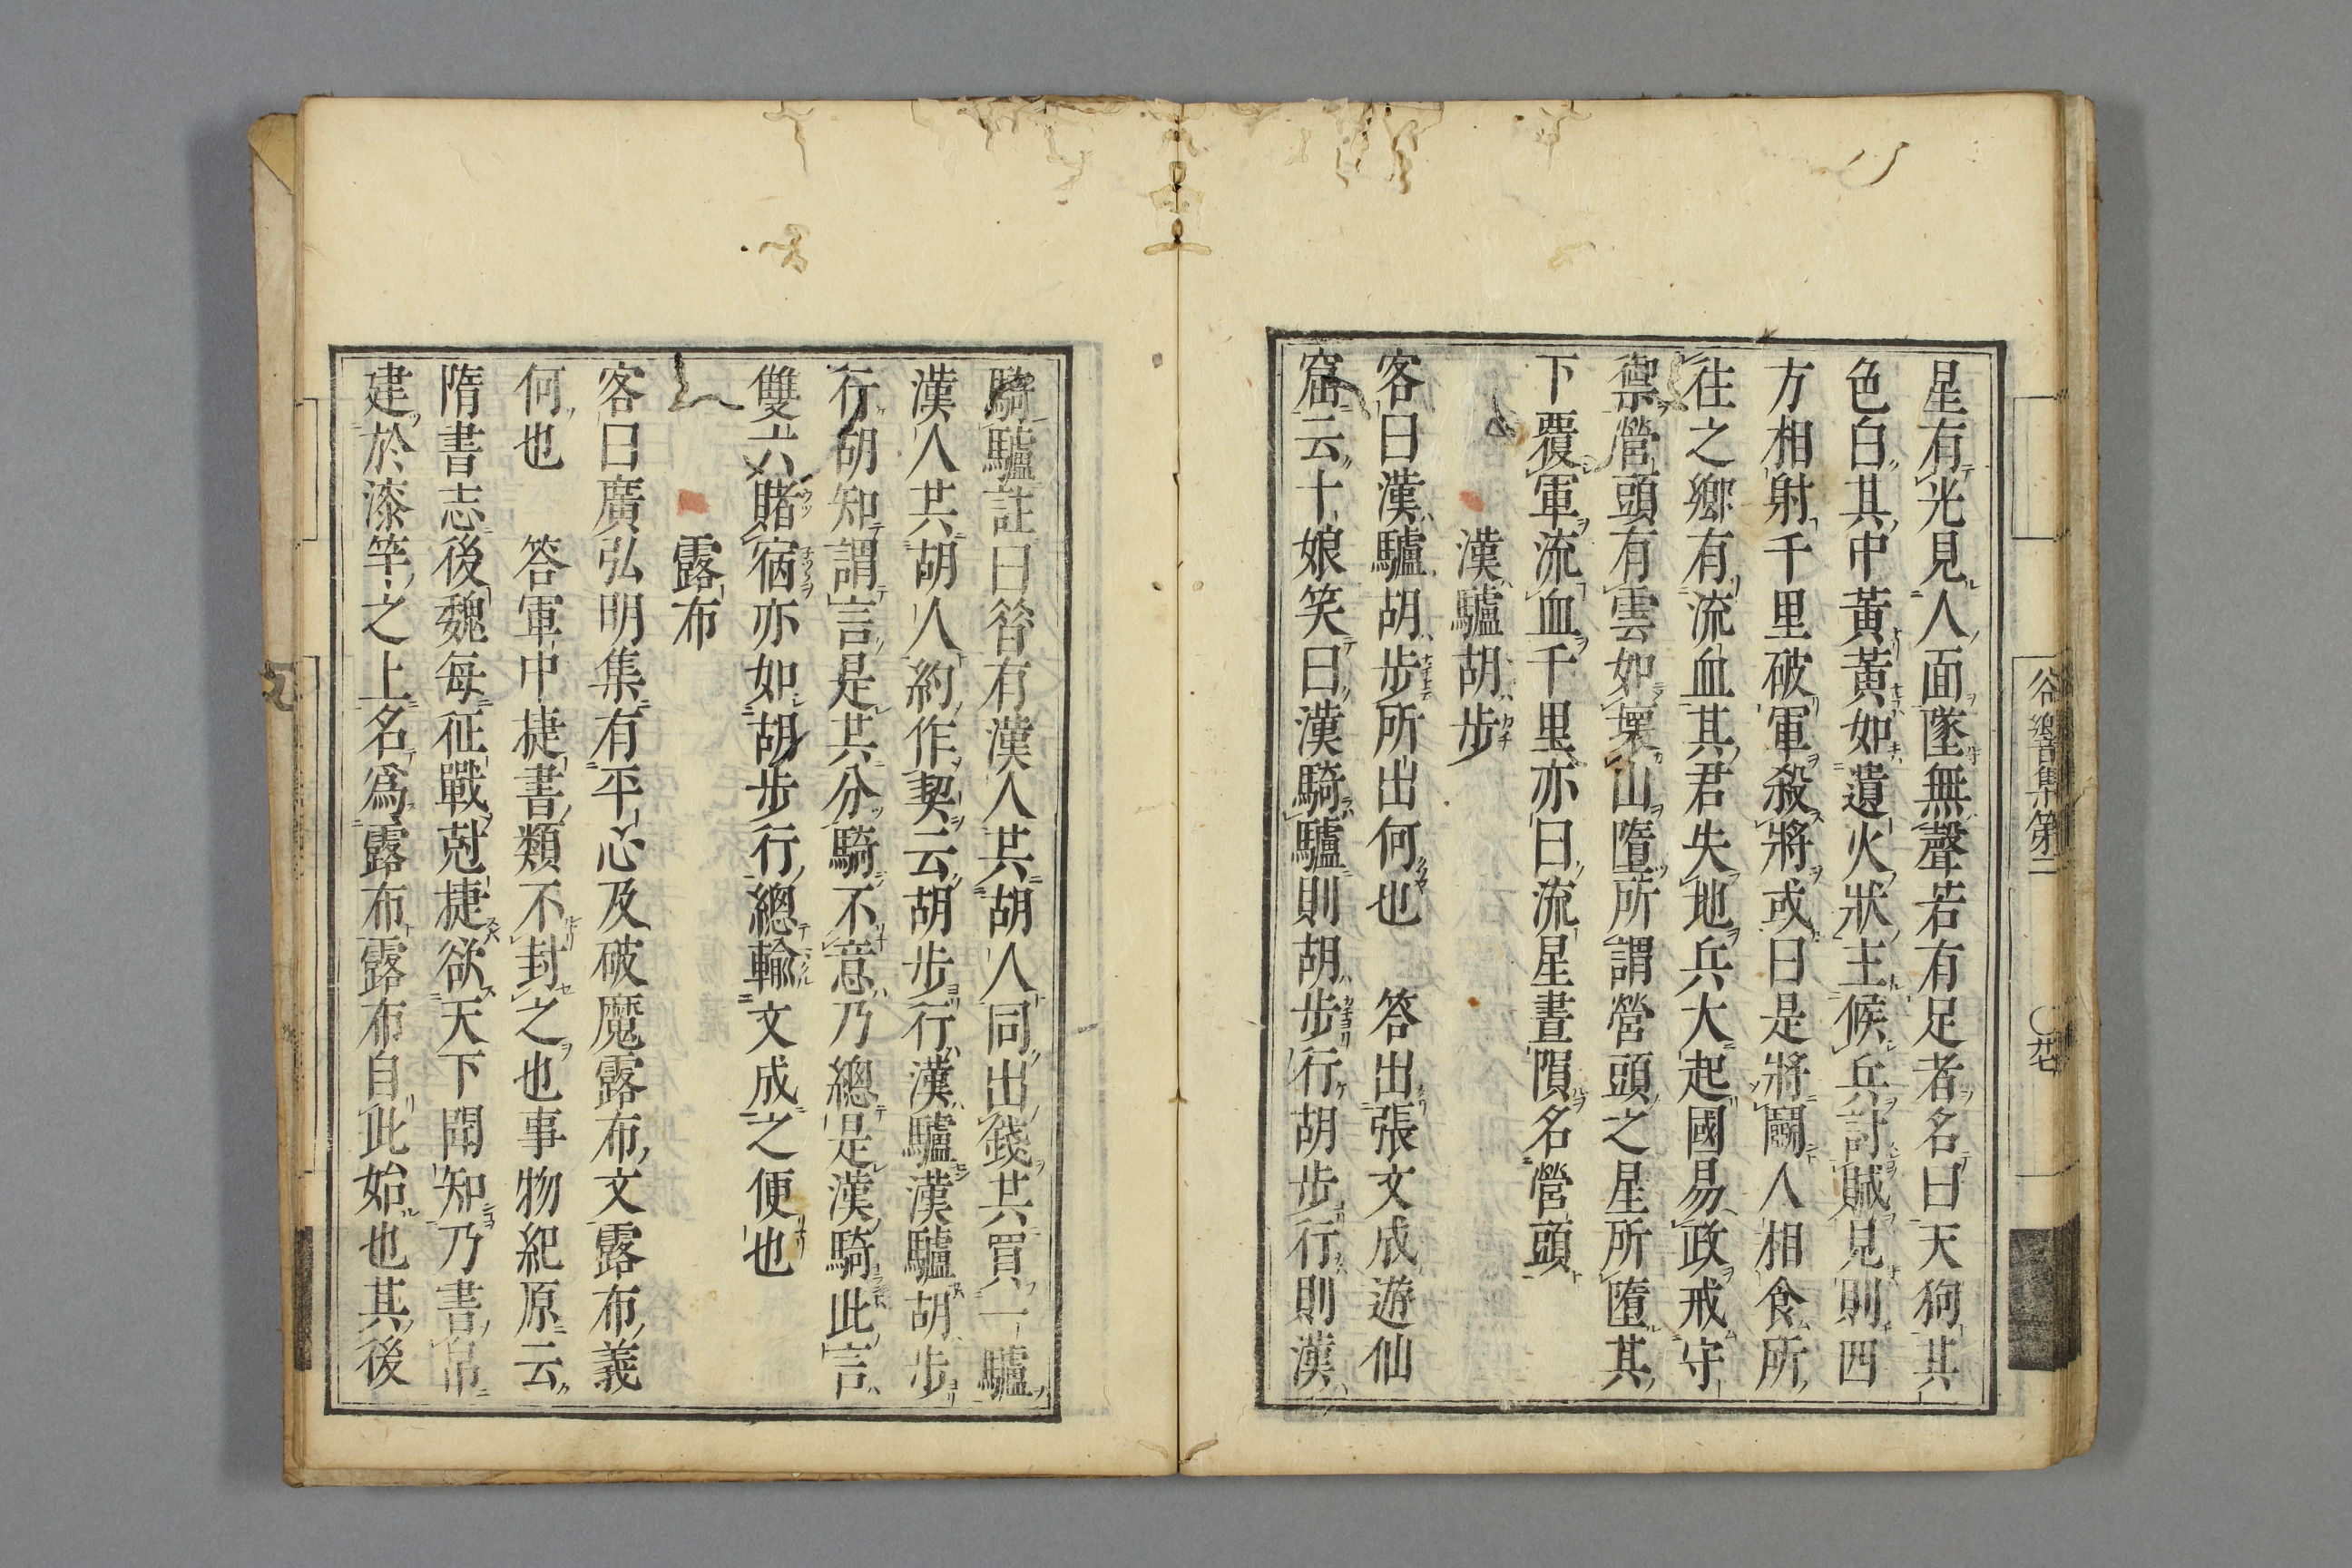 星有光見人面墜無聲若有足者名曰天狗其
色白其中黃黃如遺火狀主候兵討賊見則四
方相射千里破軍殺將或曰是將鬭人相食所
往之鄉有流血其君失地兵大起國易政戒守
禦營頭有雲如壞山墮所謂營頭之星所墮其
下覆軍流血千里亦曰流星晝隕名營頭
漢驢胡步
客曰漢驢胡步所出何也　答出張文成遊仙
窟云十娘笑曰漢騎驢則胡步行胡步行則漢
騎驢註曰答有漢人共胡人同出錢共買一驢
漢人共胡人約作契云胡步行漢驢漢驢胡步
行胡知謂言是共分騎不意乃總是漢騎此言
雙六賭宿亦如胡步行總輸文成之便也
露布
客曰廣弘明集有平心及破魔露布文露布義
何也　答軍中捷書類不封之也事物紀原云
隋書志後魏每征戰尅捷欲天下聞知乃書帛
建於漆竿之上名爲露布露布自此始也其後
谷響集第二　〇廿七